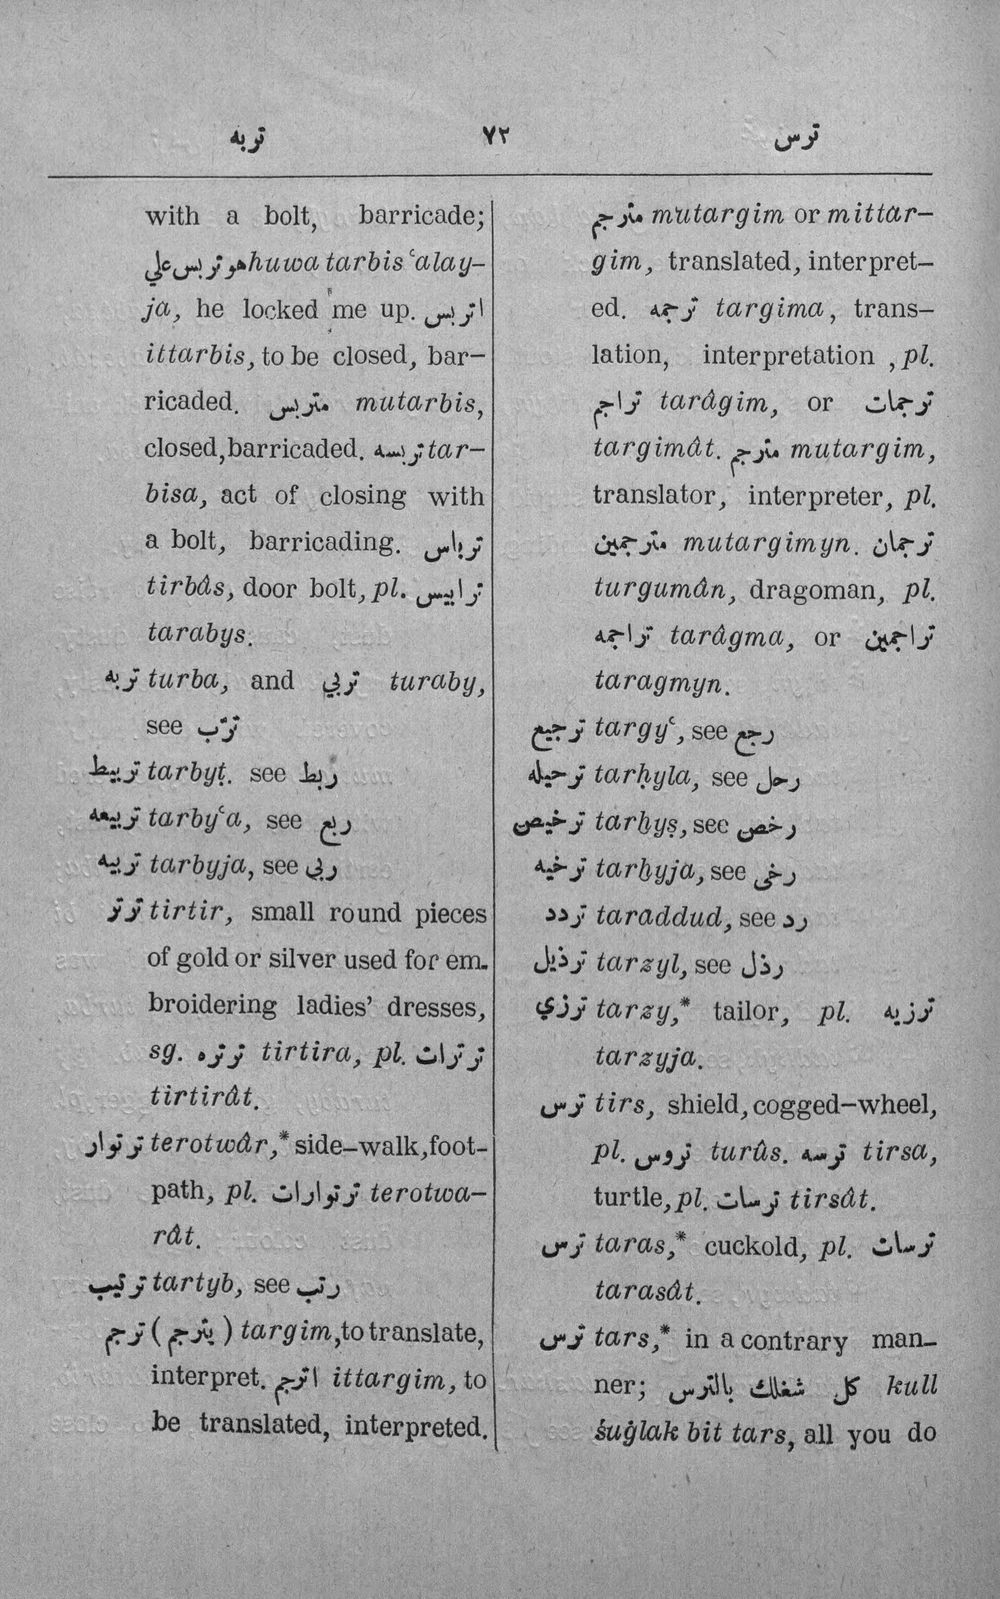 تربه ٧٢ ترس
with a bolt, barricade;
هو تربس علي huwa tarbis ʿalay–
ja, he locked me up. اتربس
ittarbis, to be closed, bar–
ricaded. متربس mutarbis,
closed, barricaded. تربسه tar–
bisa, act of closing with
a bolt, barricading. ترباس
tirbâs, door bolt, pl. ترابيس
tarabys.
تربه turba, and تربي turaby,
see ترّب
تربيط tarbyṭ. see ربط
تربيعه tarbyʿa, see ربع
تربيه tarbyja, see ربي
ترتر tirtir, small round pieces
of gold or silver used for em-
broidering ladies’ dresses,
sg. ترتره tirtira, pl. ترترات
tirtirât.
ترتوار terotwâr,* side–walk, foot-
path, pl. ترتوارات terotwa–
rât.
ترتيب tartyb, see رتب
ترجم ( يترجم ) targim, to translate,
interpret. اترجم ittargim, to
be translated, interpreted.
مترجم mutargim or mittar–
gim, translated, interpret–
ed. ترجمه targima, trans–
lation, interpretation , pl.
تراجم tarâgim, or ترجمات
targimât. مترجم mutargim,
translator, interpreter, pl.
مترجمين mutargimyn. ترجمان
turgumân, dragoman, pl.
تراجمه tarâgma, or تراجمين
taragmyn.
ترجيع targyʿ, see رجع
ترحيله tarḥyla, see رحل
ترخيص tarḫyṣ, see رخص
ترخيه tarḫyja, see رخى
تردد taraddud, see رد
ترذيل tarzyl, see رذل
ترزي tarzy,* tailor, pl. ترزيه
tarzyja.
ترس tirs, shield, cogged–wheel,
pl. تروس turûs. ترسه tirsa,
turtle, pl. ترسات tirsât.
ترس taras,* cuckold, pl. ترسات
tarasât.
ترس tars,* in a contrary man-
ner; كل شغلك بالترس kull
śuġlak bit tars, all you do